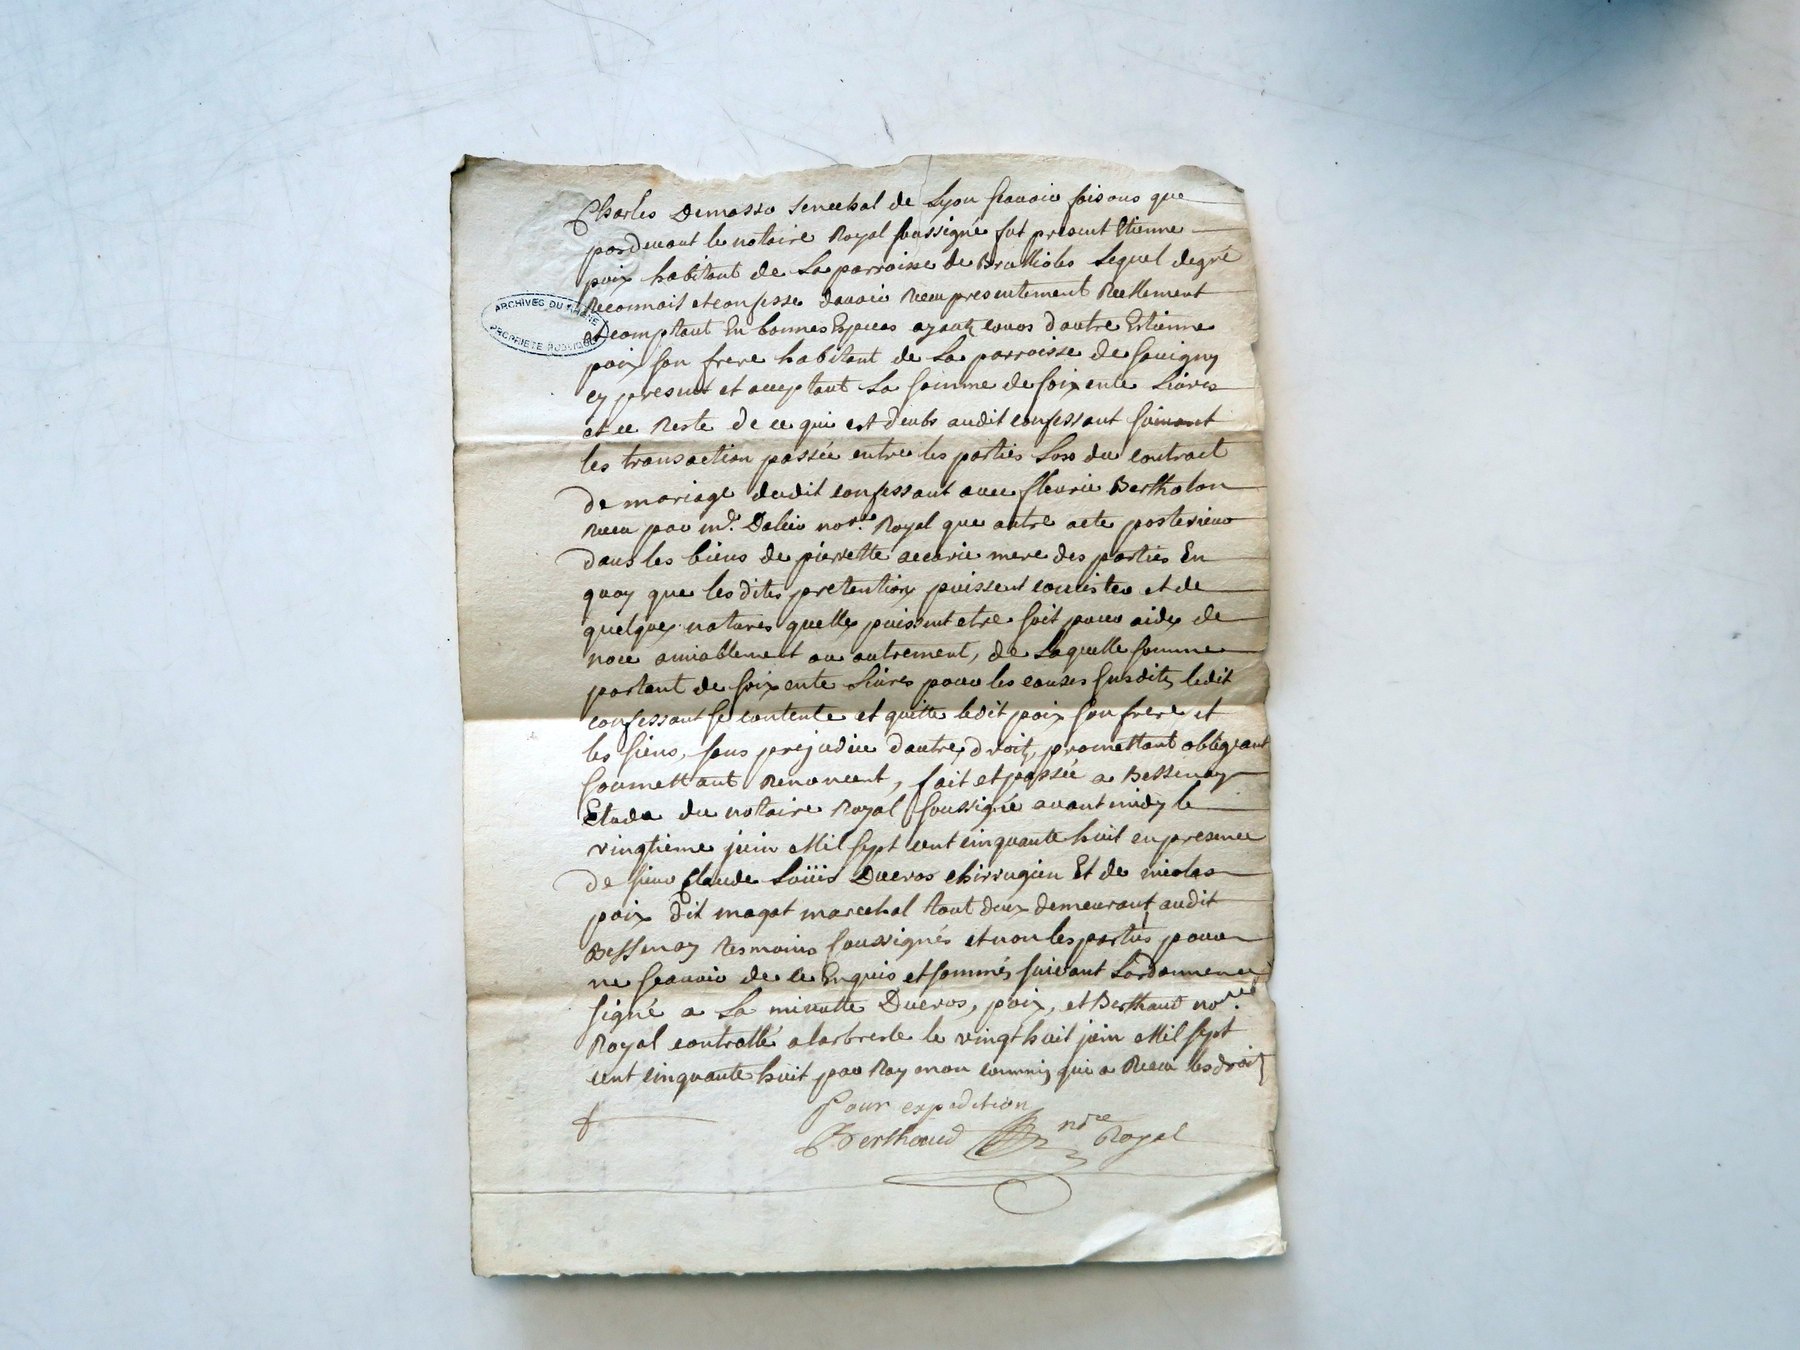 Charles Demasso Senechal de Lyon scavoir faisons que
pardevant le notaire Royal soussigné fut present Etienne
poix habitant de La parroisse de Brullioles Lequel de gré
Reconnait et confesse davoir Receu presentement Reellement
et comptant En bonnes Especes ayantz cours d'autre Estienne
poix son frere habitant de La parroisse de Savigny
cy present et acceptant La somme de soixente Livres
et ce Reste de ce qui est deubs audit confessant suivant
les transaction passée entre les parties Lors du contract
de mariage dudit confessant avec fleurie Bertholon
Receu par me. Daleir nore. Royal que autre acte posterieur
dans les biens de pierrette mere des parties En
quoy que lesdites pretentions puissent concister et de
quelques natures quelles puissent etre soit pour aides de
noce amiablement ou autrement, de Laquelle somme
portant de soixente Livres pour les causes susdites ledit
confessant se contente et quitte ledit poix son frere et
les siens, sans prejudice d'autres droits, promettant obligeant
soumettant Renoncent, fait et passée a Bessenay
Etude du notaire Royal soussigné avant midy le
vingtieme juin Mil sept cent cinquante huit en presence
de sieur Claude Loüis Ducros chirrugien Et de nicolas
poix dit magat marechal tout deux demeurant audit
Bessenay tesmoins soussignés et non les parties pour
ne scavoir de ce Enquis et sommés suivant Lordonnence
signé a La minutte Ducros, poix, et Berthaud nore.
Royal controllé a larbresle le vingt huit juin Mil sept
cent cinquante huit par Raymon commis qui a Receu les droits
Pour expedition
Berthaud nre Royal
ARCHIVES DU RHÔNE
PROPRIÉTÉ PUBLIQUE